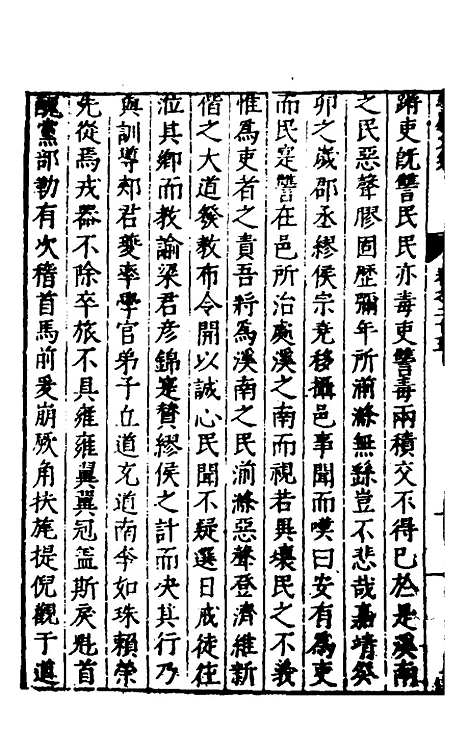 蹐吏既讐民民亦毒吏讐毒兩積交不得已於是溪南
之民惡聲膠固歷彌年所湔滌無繇豈不悲哉嘉靖癸
卯之歲郡丞繆侯宗堯移攝邑事聞而嘆曰安有爲吏
而民寔讐在邑所治處溪之南而視若異壤民之不義
惟爲吏者之責吾將爲溪南之民湔滌惡聲登濟維新
偕之大道發教布令開以誠心民聞不疑選日戒徒徃
涖其鄉而教諭梁君彦錦寔贊繆侯之計而决其行乃
與訓導鄭君夔率學官弟子丘道充道南李如珠賴榮
先從焉戎器不除卒旅不具雍雍翼翼冠盖斯戾魁首
醜黨部勒有次稽首馬前爰崩厥角扶旄提倪觀于道